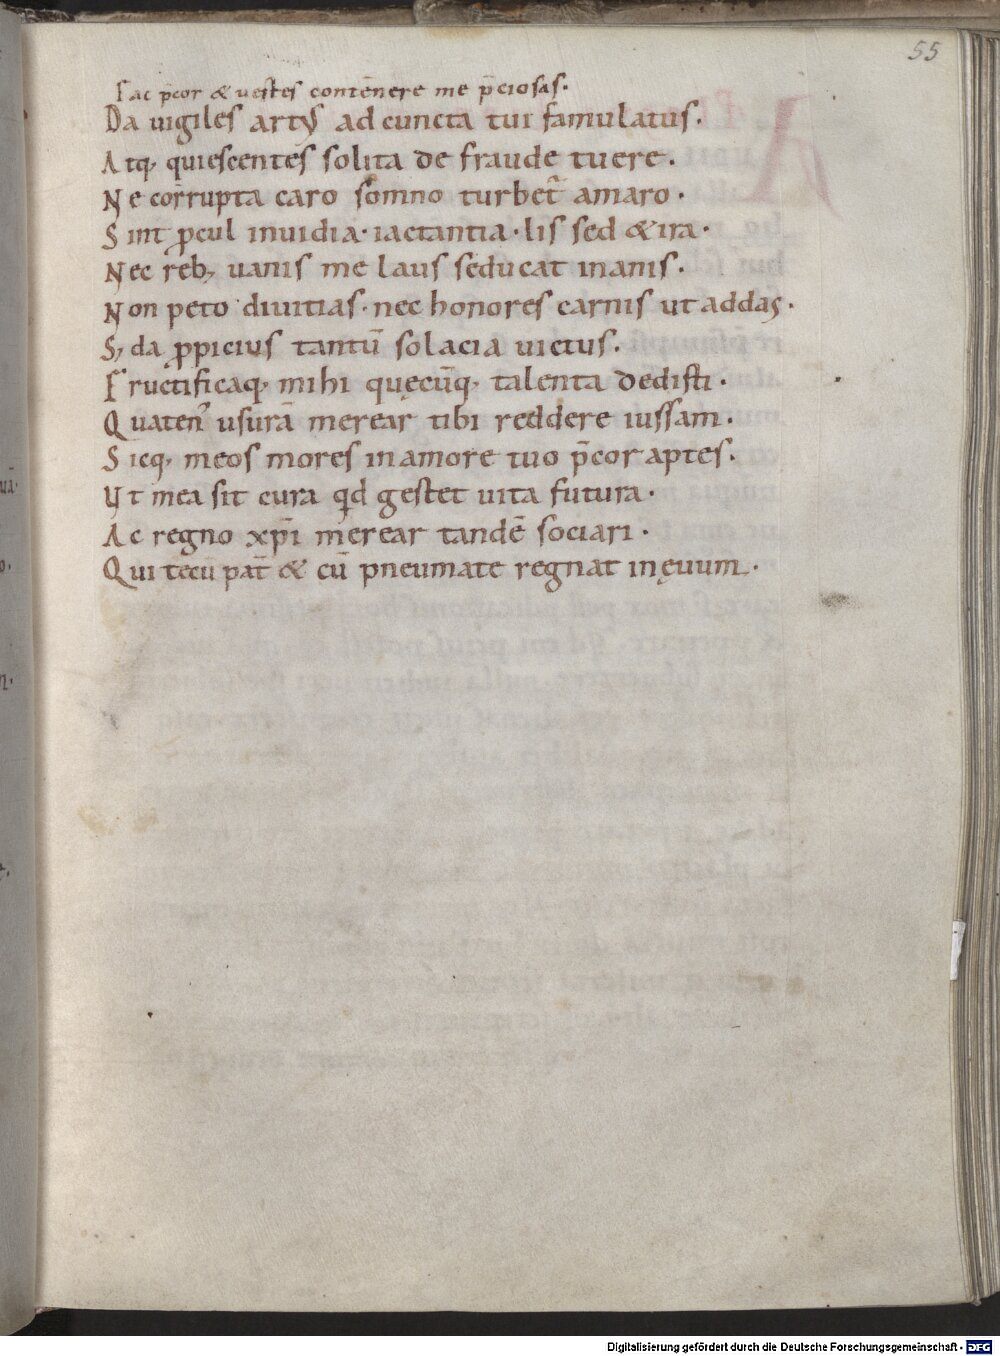 55
Fac p̄cor & uestes contēnere me p̄ciosas.
Da uigiles artꝰ ad cuncta tui famulatus.
Atq; quiescentes solita de fraude tuere.
Ne corrupta caro somno turbet᷑ amaro.
Sint ꝓcul inuidia. iactantia. lis sed & ira.
Nec reb; uanis me laus seducat inanis.
Non peto diuitias. nec honores carnis ut addas.
S; da ꝓpicius tantū solacia uictus.
Fructificaq; mihi quęcūq; talenta dedisti.
Quaten᾽ usurā merear tibi reddere iussam.
Sicq; meos mores in amore tuo p̄cor aptes.
Ut mea sit cura qd̄ gestet uita futura.
Ac regno xp̄i merear tandē sociari.
Qui tecū pat̄ & cū pneumate regnat in ęuum.
Digitalisierung gefördert durch die Deutsche Forschungsgemeinschaft - DFG